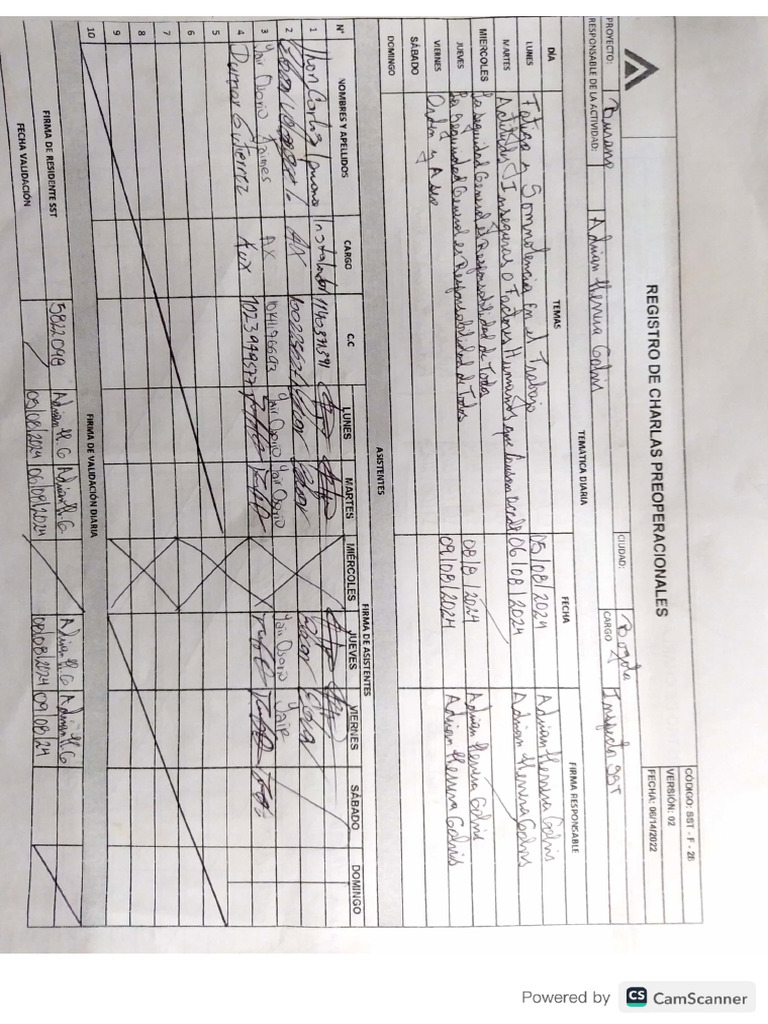 REGISTRO DE CHARLAS PREOPERACIONALES
CÓDIGO: SST - F - 28
VERSIÓN: 02
FECHA: 06/14/2022
PROYECTO: Busano CIUDAD: Bogota
RESPONSABLE DE LA ACTIVIDAD: Adrian Herrera Galvis CARGO Inspector SST
TEMATICA DIARIA
DÍA TEMAS FECHA FIRMA RESPONSABLE
LUNES Fatiga y Somnolencia En el Trabajo 05/08/2024 Adrian Herrera Galvis
MARTES Actitudes Inseguras o Factores Humanos que 06/08/2024 Adrian Herrera Galvis
MIERCOLES La seguridad General es Responsabilidad de Todos
JUEVES La seguridad General es Responsabilidad de Todos 08/8/2024 Adrian Herrera Galvis
VIERNES Orden y Aseo 09/08/2024 Adrian Herrera Galvis
SÁBADO
DOMINGO
ASISTENTES
N° NOMBRES Y APELLIDOS CARGO C.C FIRMA DE ASISTENTES
LUNES MARTES MIÉRCOLES JUEVES VIERNES SÁBADO DOMINGO
1 Jhon Carlos Instalador
2 AX
3 Yair Osorio Jaimes AX Yair Osorio Yair Osorio Yair Osorio Yair
4 Gutierrez Aux 1023949577
5
6
7
8
9
10
FIRMA DE VALIDACIÓN DIARIA
FIRMA DE RESIDENTE SST 5822098 Adrian H. G Adrian H. G Adrian H. G Adrian H. G
FECHA VALIDACIÓN 05/08/2024 06/08/2024 08/08/2024 09/08/24
Powered by CS CamScanner